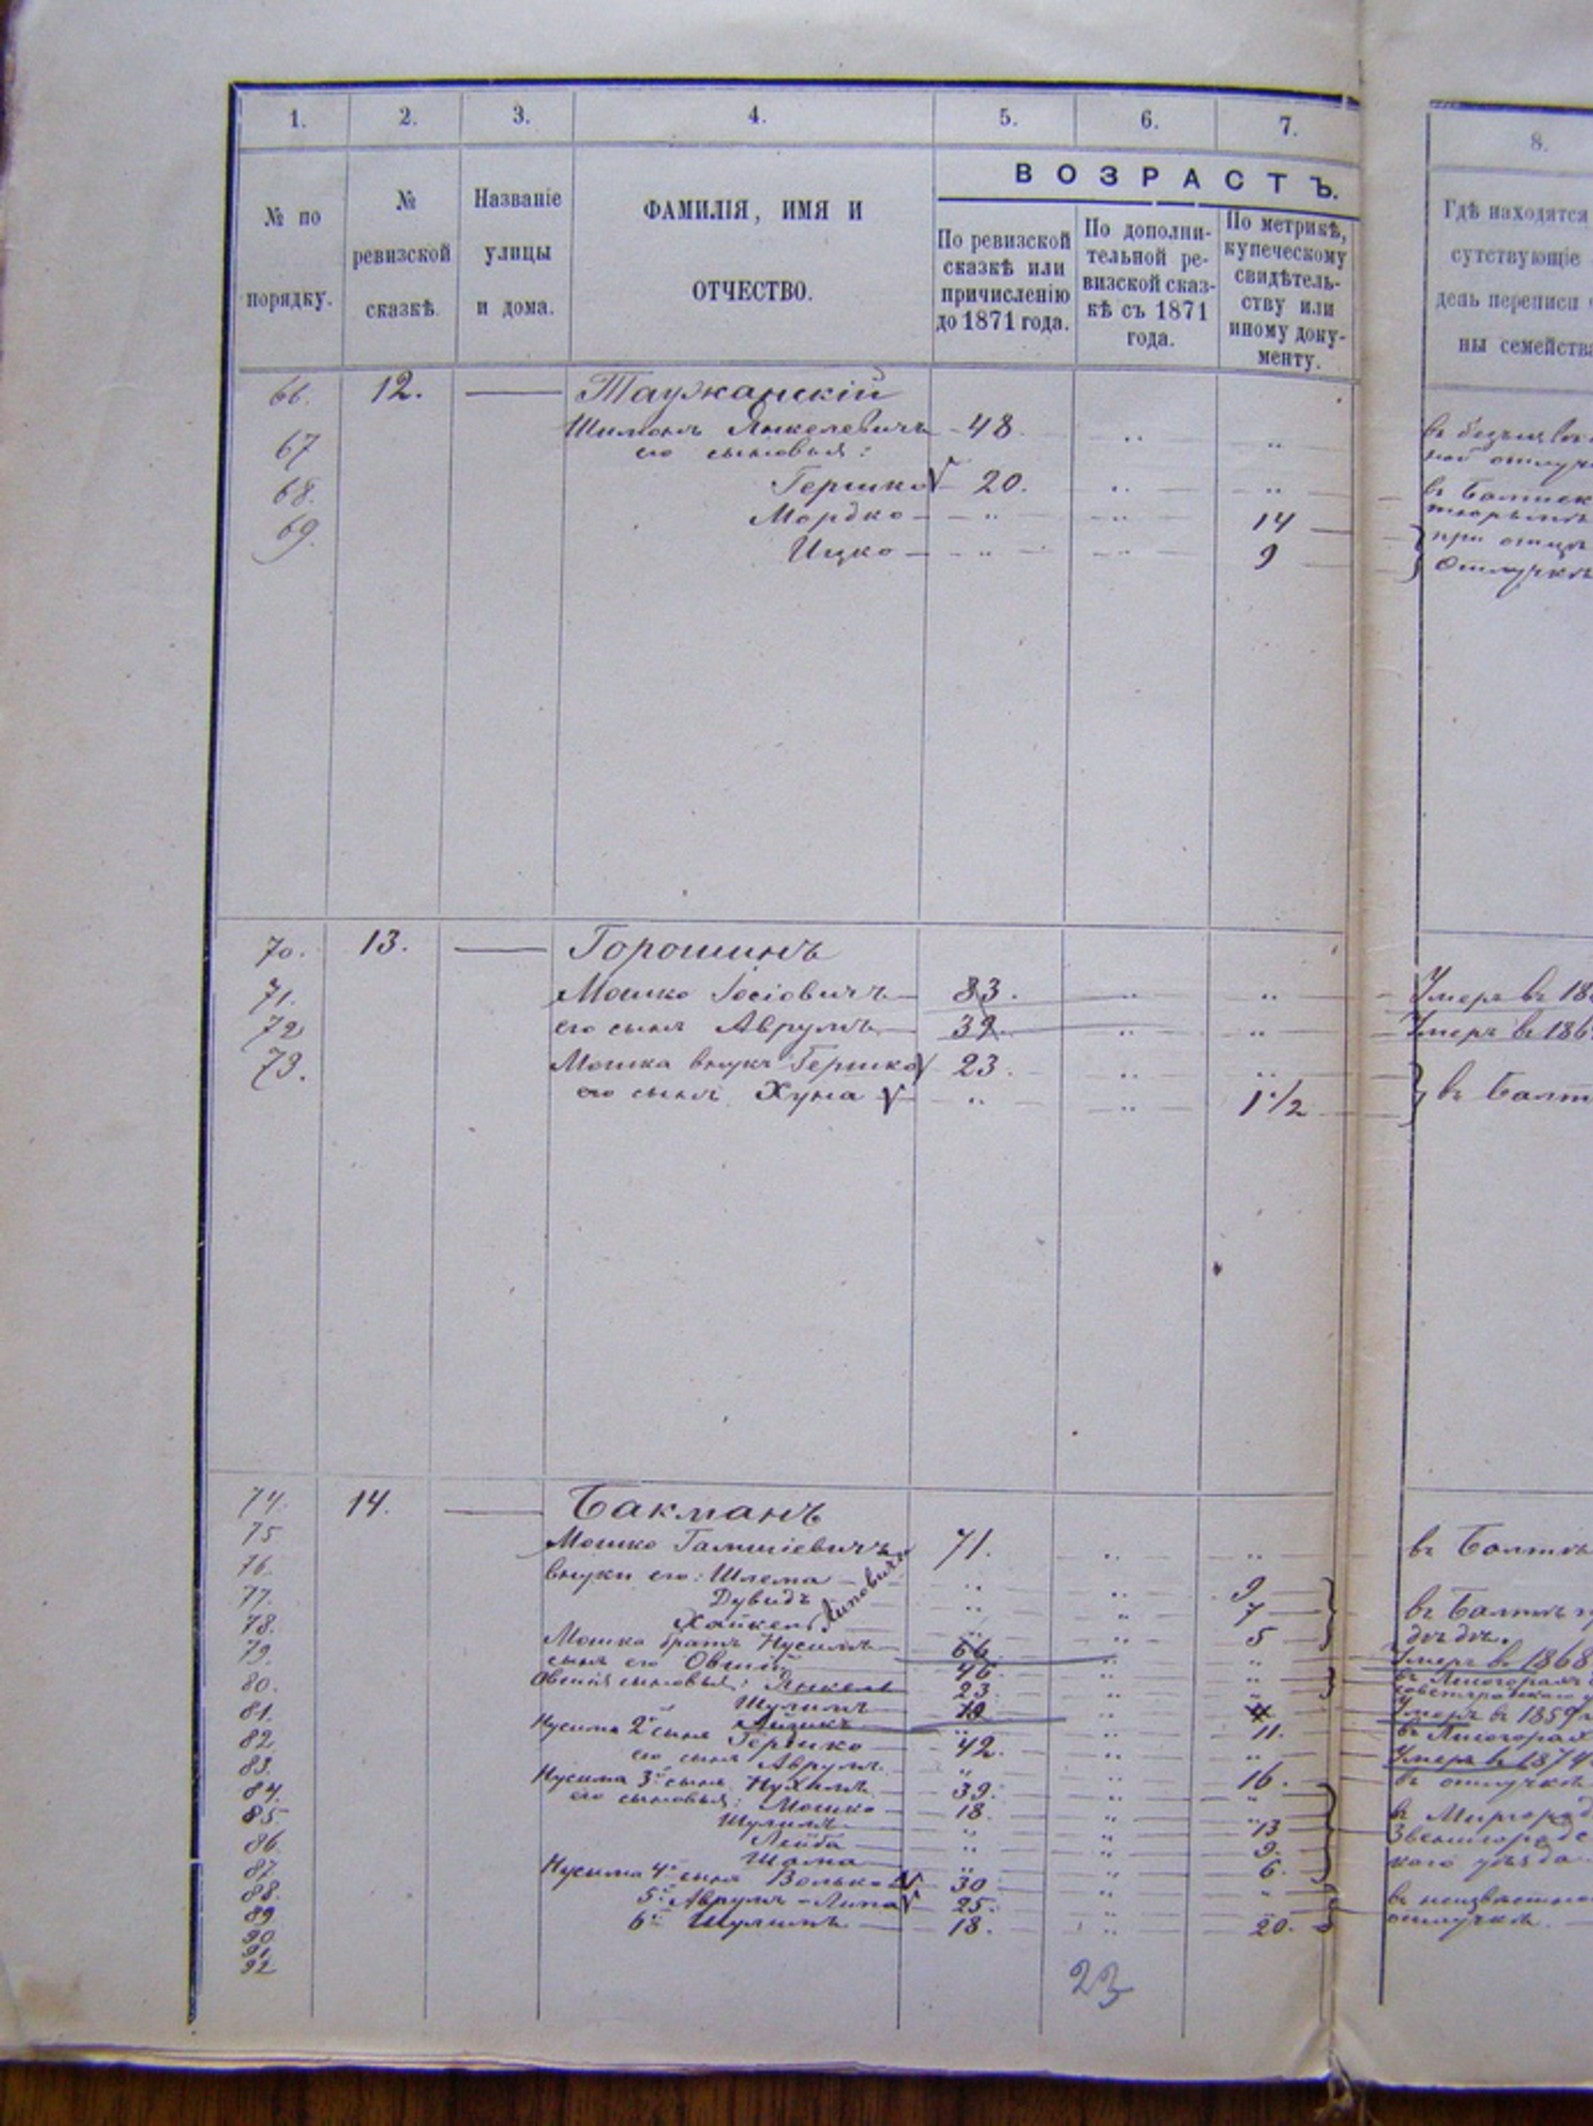 1. 2. 3. 4. 5. 6. 7. 8.
№ по порядку.
№ ревизской сказкѣ.
Названіе улицы и дома.
ФАМИЛІЯ, ИМЯ И ОТЧЕСТВО.
ВОЗРАСТЪ.
По ревизской сказкѣ или причисленію до 1871 года.
По дополнительной ревизской сказкѣ съ 1871 года.
По метрикѣ, купеческому свидѣтельству или иному документу.
Гдѣ находятся
сутствующіе
день переписи
ны семейства
66. 12. — Таужанскій
67 Шимонъ Янкелевичъ 48. „ „
его сыновья:
68. Гершко √ 20. „ „ въ Балтск
69. Мордко — „ „ 14 при отцѣ
Ицко — „ „ 9 Отлучкѣ
70. 13. — Горошинъ
71. Мошко Іосіовичъ 83. „ „ Умеръ въ 18
72 его сынъ Аврумъ 32. „ „ Умеръ въ 186
73. Мошка внукъ Гершко √ 23. „ „
его сынъ Хуна √ „ „ 1½ въ Балт
74. 14. — Бакманъ
75 Мошко Гамшіевичъ 71. „ „ въ Балтѣ
76. внуки его: Шлема „ „ 9
77. Дувидъ Липовичи „ „ 7 въ Балтѣ
78. Хаикель „ „ 5 дѣдѣ.
79. Мошка братъ Нусимъ 66 „ „ Умеръ въ 1868
сынъ его Овшій 46. „ „
80. Овшія сыновья: Янкель 23 „ „
81. Шулимъ 19 „ 4 Умеръ въ 1859
82 Айзикъ „ „ 11.
83. Нусима 2й сынъ Гершко 42. „ „ Умеръ въ 1874
его сынъ Аврумъ „ „ 16. въ отлучкѣ
84. Нусима 3й сынъ Нухимъ 39. „ „
85. его сыновья: Мошко 18. „ „
86. Шулимъ „ „ 13
87. Лейба „ „ 9.
88. Шама „ „ 6. каго уѣзда
89 Нусима 4й сынъ Волько √ 30 „ „ въ неизвѣстно
90 5й Аврумъ-Липа √ 25. „ „ отлучкѣ.
91 6й Шулимъ 18. „ 20.
92
23